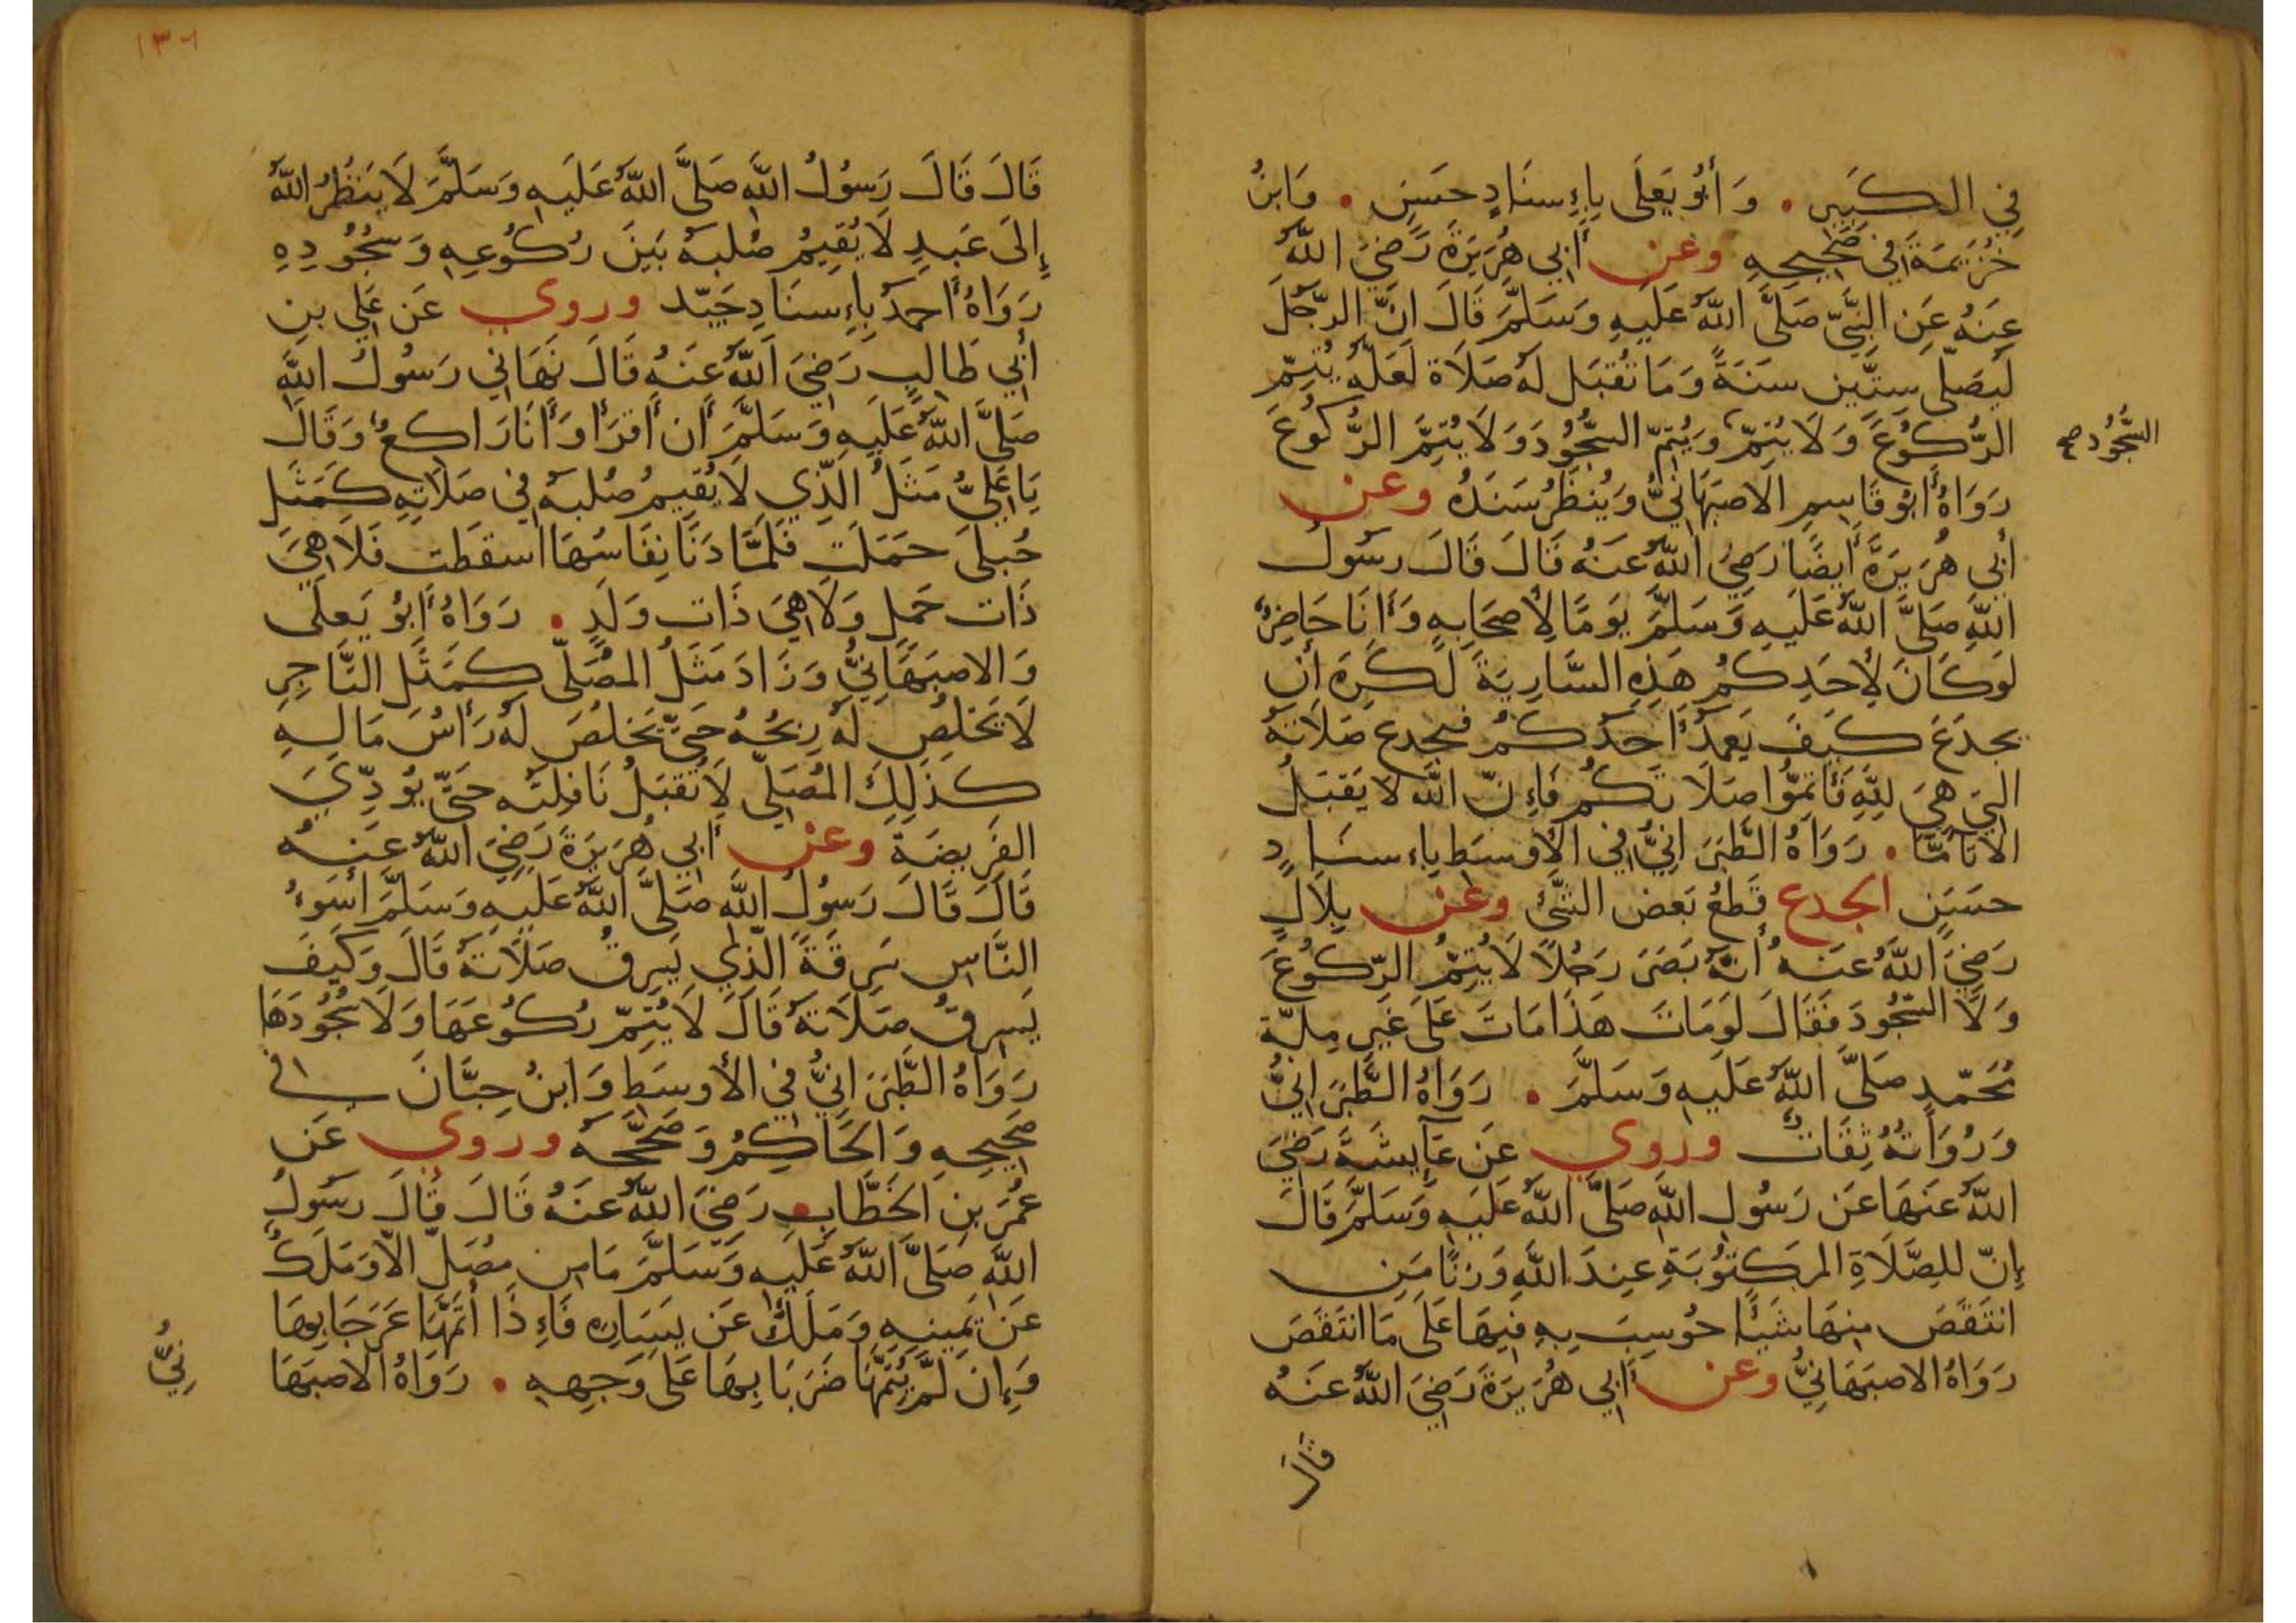 فِي الكَبِيرِ . وَأَبُو يَعلَى بِإِسنَادٍ حَسَنٍ . وَابنُ
خُزَيمَةَ فِي صَحِيحِهِ وعن أَبِي هُرَيرَةَ رَضِيَ اللَّهُ
عَنهُ عَنِ النَّبِيِّ صَلَّى اللَّهُ عَلَيهِ وَسَلَّمَ قَالَ انَّ الرَّجُلَ
لَيُصَلِّي سِتِّين سَنَةً وَمَا تُقبَل لَهُ صَلَاة لَعَلَّهُ يُتِمّ
الرُّكُوعَ وَلَا يُتِمّ وَيُتِمّ السُّجُودَ وَلَا يُتِمَّ الرُّكُوعَ
السُّجُود صح
رَوَاهُ أَبُو قَاسِمِ الاصبَهَانِيُّ وَيُنظَرُ سَنَدُهُ وعن
أَبِي هُرَيرَةَ أَيضًا رَضِيَ اللَّهُ عَنهُ قَالَ قَالَ رسَولُ
اللَّهِ صَلَّى اللَّهُ عَلَيهِ وَسَلَّمَ يَومًا لِأَصحَابِهِ وَأَنَا حَاضِرٌ
لَو كَانَ لِأَحَدِكُم هَذِهِ السَّارِيَةَ لَكَرِهَ أَن
يجدَعَ كَيفَ يَعمَدُ أَحَدُكُم فيجدع صَلَاتَهُ
التِي هِيَ لِلَّهِ فَأَتِمُّوا صَلَاتَكُم فَإِنَّ اللَّهَ لَا يَقبَلُ
الا تَامًّا . رَوَاهُ الطَّبَرَانِيُّ فِي الأَوسَطِ بِإِسنَادٍ
حَسَنٍ الجدع قَطعُ بَعض الشَّئ وعن بِلَالٍ
رَضِيَ اللَّهُ عَنهُ أَنَّهُ بَصَرَ رَجُلًا لَا يُتِمُّ الرُّكُوعَ
وَلَا السُّجُودَ فَقَالَ لَو مَاتَ هَذَا مَاتَ عَلَى غَيرِ مِلَّة
مُحَمّدٍ صَلَّى اللَّهُ عَلَيهِ وَسَلَّمَ . رَوَاهُ الطَّبَرَانِيُّ
وَرُوَاتُهُ ثِقَاتٌ وروي عَن عَآيِشَةَ رَضِيَ
اللَّهُ عَنهَا عَن رَسُولِ اللَّهِ صَلَّى اللَّهُ عَلَيهِ وَسَلَّمَ قَالَ
إِنّ للِصَّلَاةِ المَكتُوبَةِ عِندَ اللَّهِ وَزنًا مَنِ
انتَقَصَ مِنهَا شَيئًا حُوسِبَ بِهِ فِيهَا عَلَى مَا انتَقَصَ
رَوَاهُ الاصبَهَانِيُّ وعن أَبِي هُرَيرَةَ رَضِيَ اللَّهُ عَنهُ
قَالَ
١٣٠١
قَالَ قَالَ رَسُولُ اللَّهِ صَلَّى اللَّهُ عَلَيهِ وَسَلَّمَ لَا يَنظُرُ اللَّهُ
إِلَى عَبدٍ لَا يُقِيمُ صُلبَهُ بَينَ رُكُوعِهِ وَسُجُودِهِ
رَوَاهُ أَحمَدُ بِإِسنَادٍ جَيّد وروي عَن عَلِي بنِ
أَبِي طَالِبٍ رَضِيَ اللَّهُ عَنهُ قَالَ نَهَانِي رَسُولُ اللَّهِ
صَلَّى اللَّهُ عَلَيهِ وَسَلَّمَ أَن أَقرَأَ وَأَنَا رَاكعٌ وَقَالَ
يَا عَلِيُّ مَثَلُ الَّذِي لَا يُقِيمُ صُلبَهُ فِي صَلَاتِهِ كَمَثَلِ
حُبلَى حَمَلَت فَلَمَّا دَنَا نِفَاسُهَا اسقَطَت فَلَا هِيَ
ذَات حَملٍ وَلَا هِيَ ذَات وَلَدٍ . رَوَاهُ أَبُو يَعلَى
وَالاصبَهَانِيُّ وَزَادَ مَثَلُ المُصَلّي كَمَثَلِ التَّاجِرِ
لَا يَخلُصُ لَهُ رِبحُهُ حَتَّى يَخلُصَ لَهُ رَأسُ مَالِهِ
كَذَلِكَ المُصَلِّي لَا تُقبَلُ نَافِلَتُه حَتَّى يُؤدِّيَ
الفَرِيضَةِ وعن أَبِي هُرَيرَةَ رَضِيَ اللَّهُ عَنهُ
قَالَ قَالَ رَسُولُ اللَّهِ صَلَّى اللَّهُ عَلَيهِ وَسَلَّمَ أَسَوءُ
النَّاسِ سَرِقَةً الَّذِي يَسرِقُ صَلَاتَهُ قَالَ وَكَيفَ
يَسرِقُ صَلَاتَهُ قَالَ لَا يُتِمّ رُكُوعَهَا وَلَا سُجُودَهَا
رَوَاهُ الطَّبَرَانِيُّ فِي الأَوسَطِ وَابنُ حِبَّانَ فى
صَحِيحِهِ وَالحَاكِمُ وَصَحَّحَهُ وروي عَن
عُمَرَ بنِ الخَطَّابِ رَضِيَ اللَّهُ عَنهُ قَالَ قَالَ رسَولُ
اللَّهِ صَلَّى اللَّهُ عَلَيهِ وَسَلَّمَ مَا مِن مُصَلٍّ الَّا وَمَلَكٌ
عَن يَمِينِهِ وَمَلَكٌ عَن يَسَارِهِ فَإِذَا أَتَمَّهَا عَرَجَا بِهَا
وَإِن لَّم يُتِمَّهَا ضَرَبَا بِهَا عَلَى وَجهِهِ . رَوَاهُ الاصبَهَا
نِيُّ